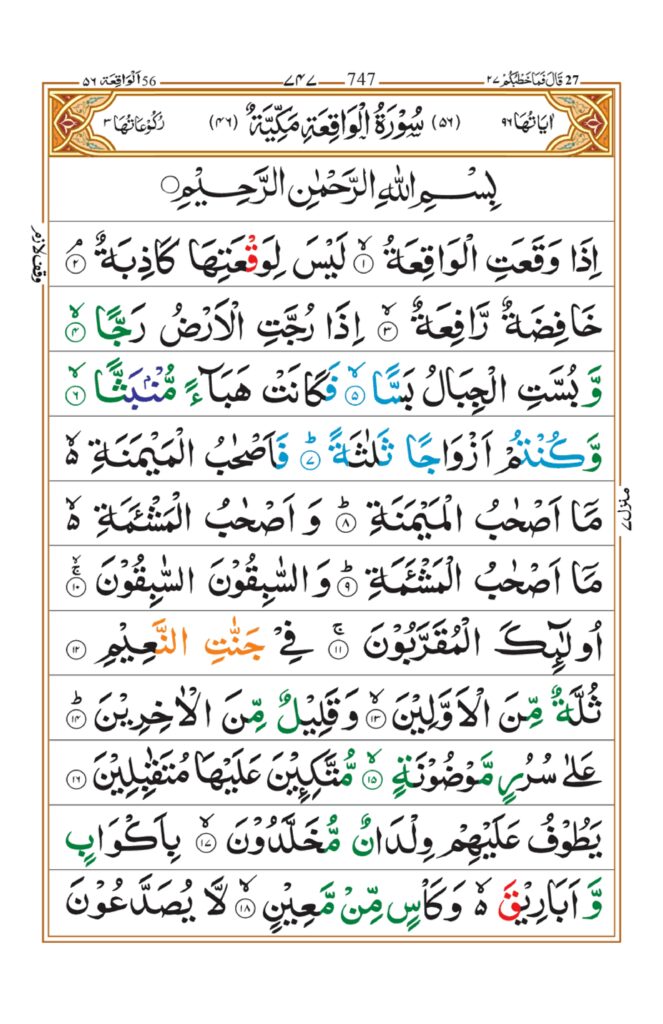 27 قَالَ فَمَا خَطْبُكُمْ ۲۷
747 ۷۴۷
56 اَلْوَاقِعَة ۵۶
اٰيَاتُهَا ۹۶ (۵۶) سُوْرَةُ الْوَاقِعَةِ مَكِّيَّةٌ (۴۶) رُكُوْعَاتُهَا ۳
بِسْمِ اللّٰهِ الرَّحْمٰنِ الرَّحِيْمِ ۝
اِذَا وَقَعَتِ الْوَاقِعَةُ ۙ‏﴿۱﴾ لَيْسَ لِوَقْعَتِهَا كَاذِبَةٌ ۘ‏﴿۲﴾
وقف لازم
خَافِضَةٌ رَّافِعَةٌ ۙ‏﴿۳﴾ اِذَا رُجَّتِ الْاَرْضُ رَجًّا ۙ‏﴿۴﴾
وَّ بُسَّتِ الْجِبَالُ بَسًّا ۙ‏﴿۵﴾ فَكَانَتْ هَبَآءً مُّنْۢبَثًّا ۙ‏﴿۶﴾
وَّكُنْتُمْ اَزْوَاجًا ثَلٰثَةً ؕ‏﴿۷﴾ فَاَصْحٰبُ الْمَيْمَنَةِ ۙ۬
مَاۤ اَصْحٰبُ الْمَيْمَنَةِ ؕ‏﴿۸﴾ وَ اَصْحٰبُ الْمَشْئَمَةِ ۙ۬
منزل ۷
مَاۤ اَصْحٰبُ الْمَشْئَمَةِ ؕ‏﴿۹﴾ وَ السّٰبِقُوْنَ السّٰبِقُوْنَ ۚۙ‏﴿۱۰﴾
اُولٰٓئِكَ الْمُقَرَّبُوْنَ ۚ‏﴿۱۱﴾ فِيْ جَنّٰتِ النَّعِيْمِ ‏﴿۱۲﴾
ثُلَّةٌ مِّنَ الْاَوَّلِيْنَ ۙ‏﴿۱۳﴾ وَقَلِيْلٌ مِّنَ الْاٰخِرِيْنَ ؕ‏﴿۱۴﴾
عَلٰى سُرُرٍ مَّوْضُوْنَةٍ ۙ‏﴿۱۵﴾ مُّتَّكِـِٕيْنَ عَلَيْهَا مُتَقٰبِلِيْنَ ‏﴿۱۶﴾
يَطُوْفُ عَلَيْهِمْ وِلْدَانٌ مُّخَلَّدُوْنَ ۙ‏﴿۱۷﴾ بِاَكْوَابٍ
وَّ اَبَارِيْقَ ۙ۬ وَكَاْسٍ مِّنْ مَّعِيْنٍ ۙ‏﴿۱۸﴾ لَّا يُصَدَّعُوْنَ